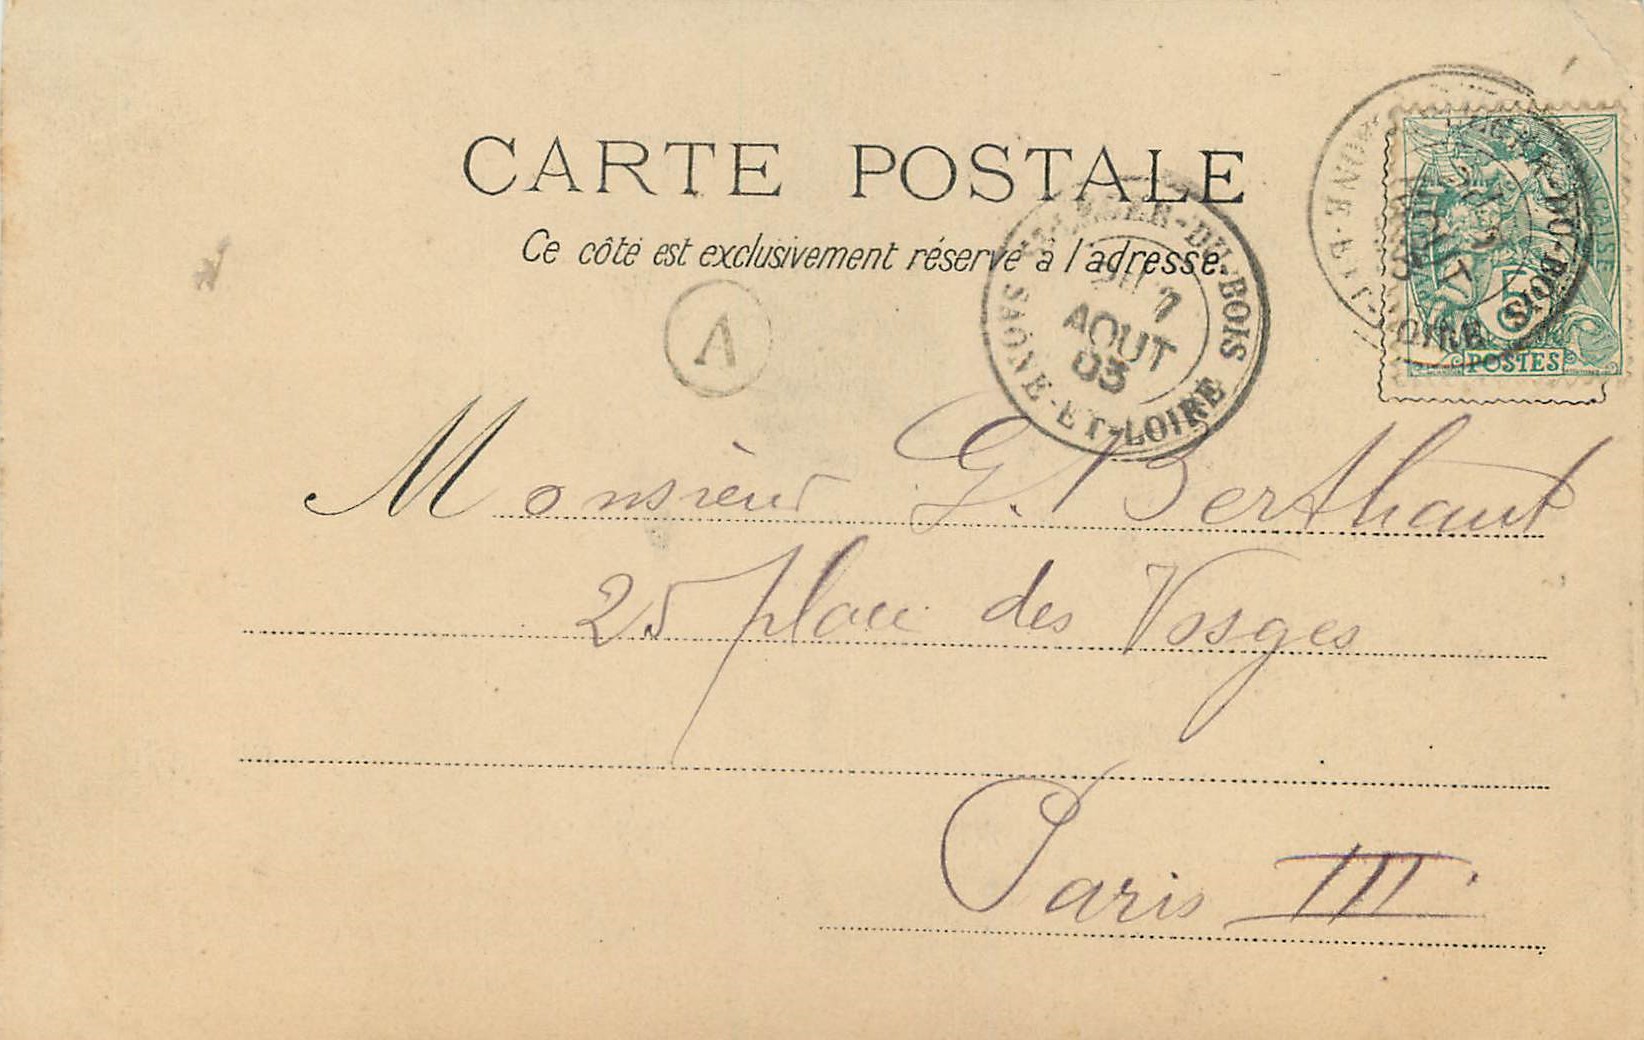 CARTE POSTALE
Ce côté est exclusivement réservé à l'adresse.
DU-BOIS
AOUT
03
SAÔNE-ET-LOIRE
DU-BOIS
AOUT
POSTES
A
Monsieur G. Berthaut
25 place des Vosges
Paris III